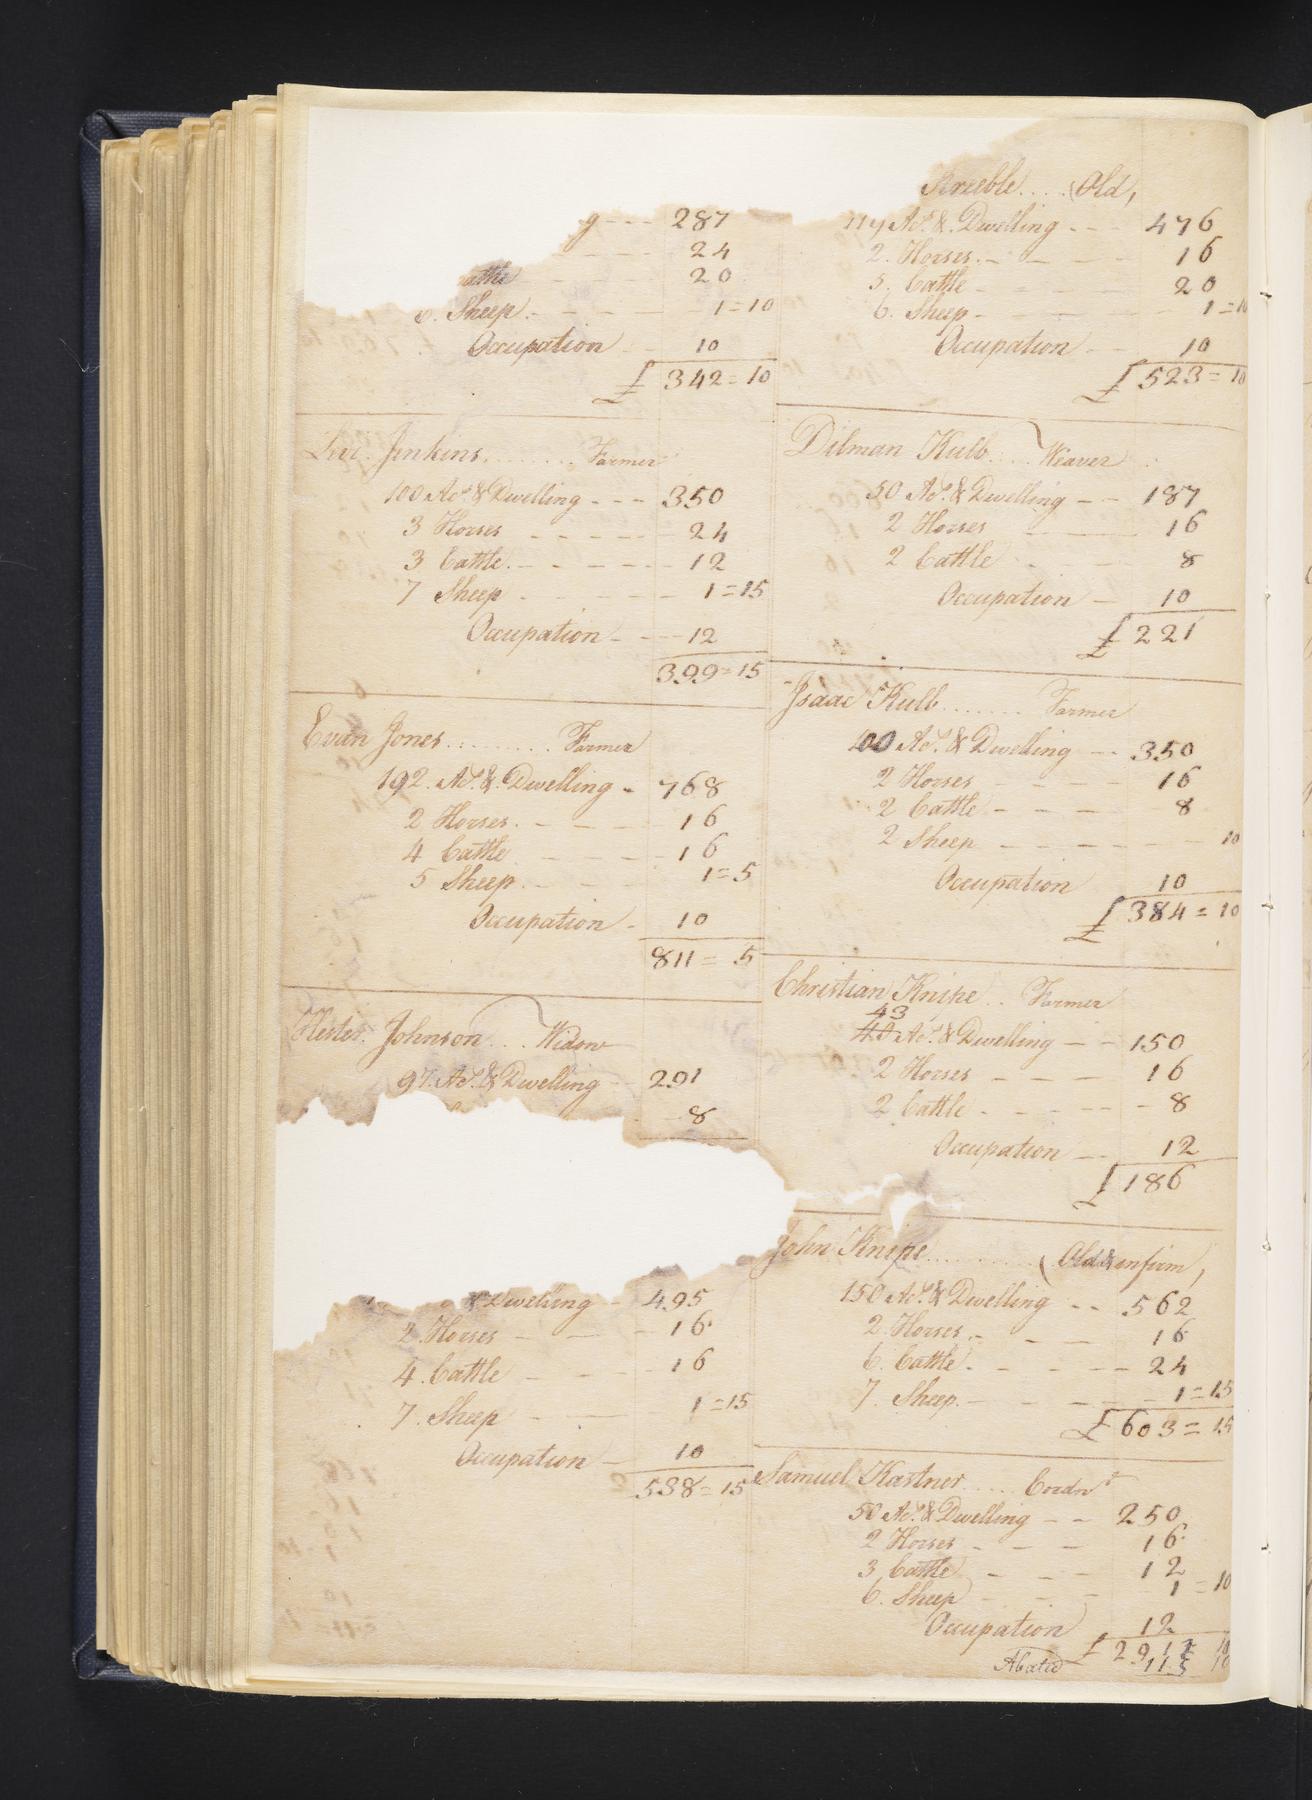 g - - - 287
- - - 24
attle - - - 20
Sheep. - - - - 1=10
Occupation - 10
£ 342=10
Jenkins........ Farmer
100 Acs. & Dwelling - - - 350
3 Horses - - - - - 24
3 Cattle. - - - - - 12
7 Sheep - - - - - 1=15
Occupation - - - - 12
399=15
Evan Jones........... Farmer
192. Acs. & Dwelling - 768
2 Horses. - - - - 16
4 Cattle - - - - - 16
5 Sheep. - - - 1=5
Occupation - 10
811=5
Hester. Johnson.... Widow
97. Acs. & Dwelling - - 291
8
& Dwelling - 495
2 Horses - - - 16
4. Cattle - - - - 16
7. Sheep - - 1=15
Occupation - 10
538=15
Kreeble.... (Old,
119 Acs. & Dwelling - - - 476
2. Horses. - - - - 16
5. Cattle - - - - 20
6. Sheep - - - - 1=10
Occupation - - 10
£ 523=10
Dilman Kulb.... Weaver
50 Acs. & Dwelling - - 187
2 Horses - - - 16
2 Cattle - - - 8
Occupation - 10
£ 221
Isaac Kulb........ Farmer
100 Acs. & Dwelling - - 350
2 Horses - - - 16
2 Cattle - - - - 8
2 Sheep - - - - - 10
Occupation 10
£ 384=10
Christian Knipe.. Farmer
43
Acs. & Dwelling - - 150
2 Horses - - - 16
2 Cattle - - - - - 8
Occupation - - 12
£ 186
John Knipe.......... (Old & infirm,
150 Acs. & Dwelling - - 562
2. Horses. - - - 16
6. Cattle. - - - - - 24
7. Sheep. - - - - 1=15
£ 603=15
Samuel Kastner..... Cordwr
50 Acs. & Dwelling - - 250
2 Horses - - - 16
3 Cattle - - - 12
6. Sheep - - - 1=10
Occupation 12
£ 291 10
Abated